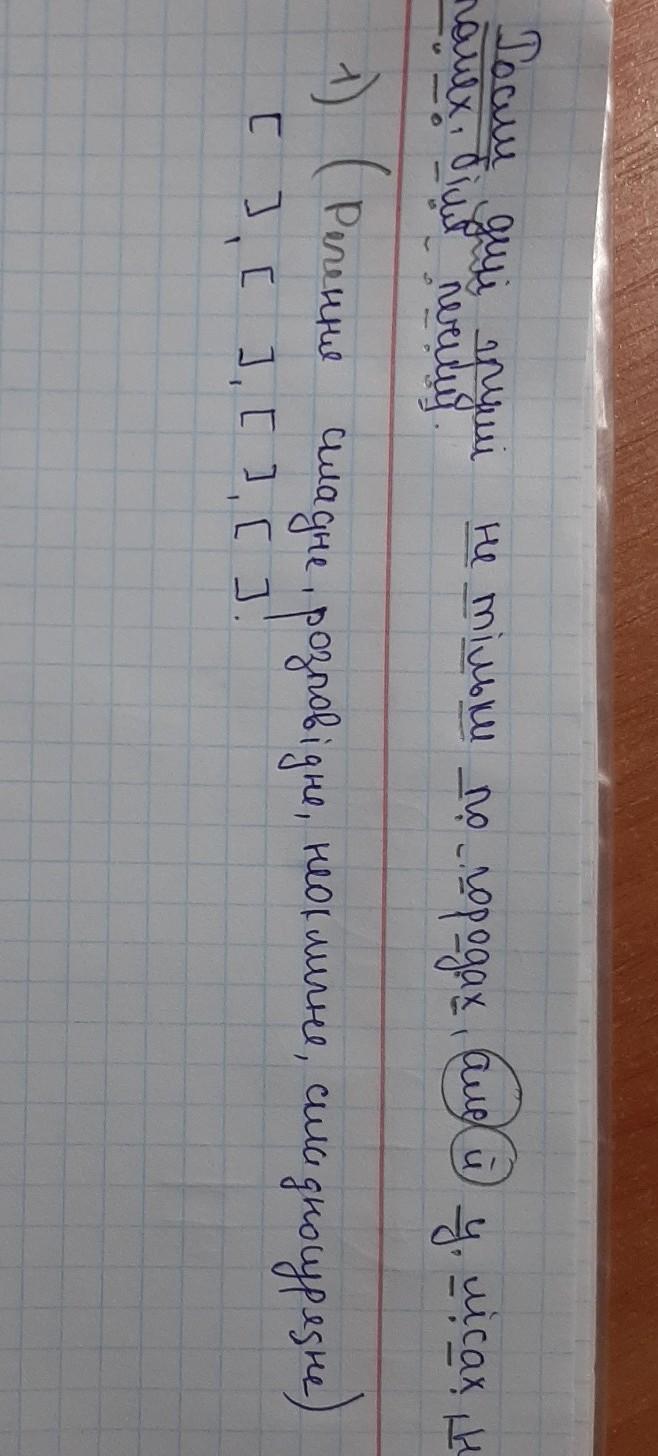 Росли дикі груші не тільки по городах, але й у лісах, н
полях, біля
1) (Речення складне, розповідне, неокличне, складносурядне)
[ ], [ ], [ ], [ ].